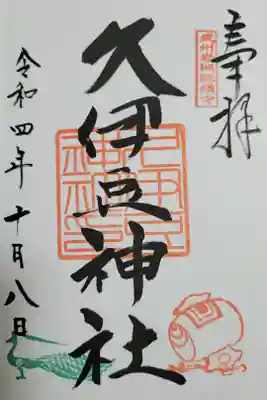 奉拝
久伊豆神社
令和四年十月八日